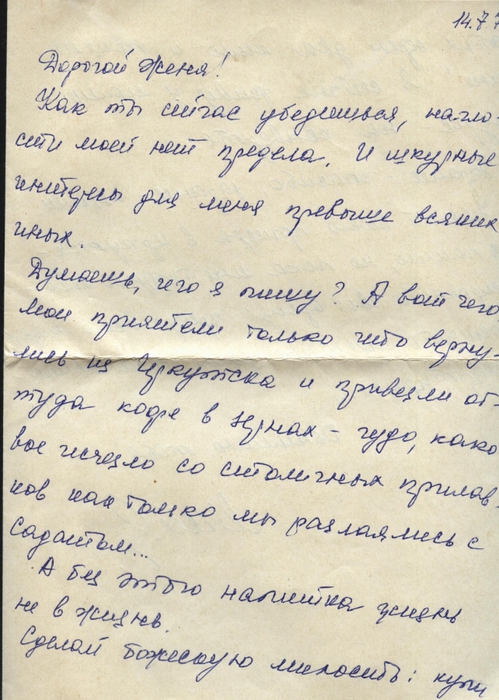 14.77
Дорогой Женя!
Как ты сейчас убедишься, нагло-
сти моей нет предела. И шкурные
интересы для меня превыше всяких
иных.
Думаешь, чего я пишу? А вот чего
мои приятели только что верну-
лись из Иркутска и привезли от-
туда кофе в зернах – чудо, како
вое исчезло со столичных прилав-
ков как только мы разлаялись с
Садатом...
А без этого напитка жизнь
не в жизнь.
Сделай божескую милость: купи